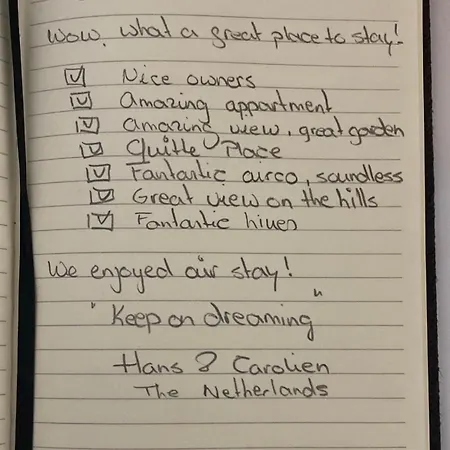 Wow, what a great place to stay!
Nice owners
Amazing appartment
Amazing view, great garden
Quitte Place
Fantastic airco, soundless
Great view on the hills
Fantastic
We enjoyed our stay!
"Keep on dreaming"
Hans & Carolien
The Netherlands